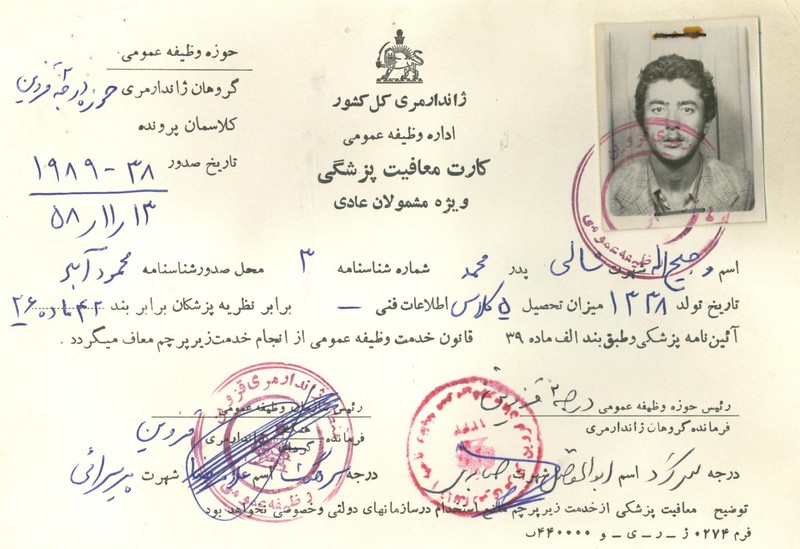 حوزه وظیفه عمومی
گروهان ژاندارمری حوزه درجه ۲ قزوین
کلاسمان پرونده
تاریخ صدور ۳۸ - ۱۹۸۹
۱۳ر۱۱ر۵۸
ژاندارمری کل کشور
اداره وظیفه عمومی
کارت معافیت پزشگی
ویژه مشمولان عادی
اسم وجیح اله شهرت پدر محمد شماره شناسنامه ۳ محل صدورشناسنامه محمودآباد
تاریخ تولد ۱۳۳۸ میزان تحصیل ۵ کلاس اطلاعات فنی — برابر نظریه پزشکان برابر بند ۴۲ ماده ۲۶
آئین نامه پزشکی وطبق بند الف ماده ۳۹ قانون خدمت وظیفه عمومی از انجام خدمت زیر پرچم معاف میگردد .
رئیس حوزه وظیفه عمومی درجه ۲ قزوین
فرمانده گروهان ژاندارمری
درجه سرگرد اسم ابوالفضل شهرت صابری
رئیس وظیفه عمومی
فرمانده ژاندارمری قزوین
درجه سرهنگ ۲ اسم شهرت
توضیح معافیت پزشکی از خدمت زیر پرچم مانع استخدام درسازمانهای دولتی وخصوصی نخواهد بود
فرم ۰۲۷۴ ژ ـ ر ـ ی ـ و ۴۴۰۰۰۰ ب
ژاندارمری قزوین
وظیفه عمومی